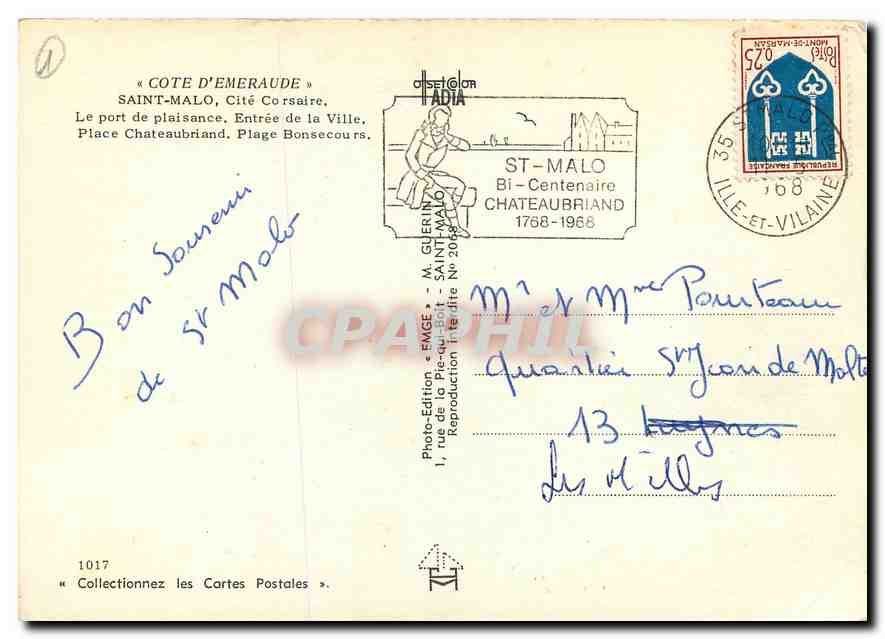 1
« COTE D'EMERAUDE »
SAINT-MALO, Cité Corsaire.
Le port de plaisance. Entrée de la Ville.
Place Chateaubriand. Plage Bonsecours.
offset Color
IADIA
ST-MALO
Bi-Centenaire
CHATEAUBRIAND
1768-1968
35 ST-MALO
ILLE-ET-VILAINE
1968
Postes
MONT-DE-MARSAN
0,25
REPUBLIQUE FRANÇAISE
Bon Souvenir
de St Malo
Photo-Edition « EMGE » - M. GUERIN
1, rue de la Pie-qui-Boit - SAINT-MALO
Reproduction interdite No 2068
Mr et Mme Pourteau
quartier St Jean de Malte
13 Luynes
Les Milles
CPAPHIL
1017
« Collectionnez les Cartes Postales ».